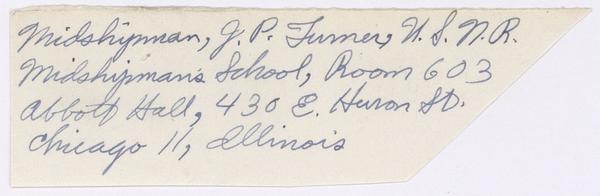 Midshipman, J. P. Turner, U. S. N. R.
Midshipman's School, Room 603
Abbott Hall, 430 E. Huron St.
Chicago 11, Illinois